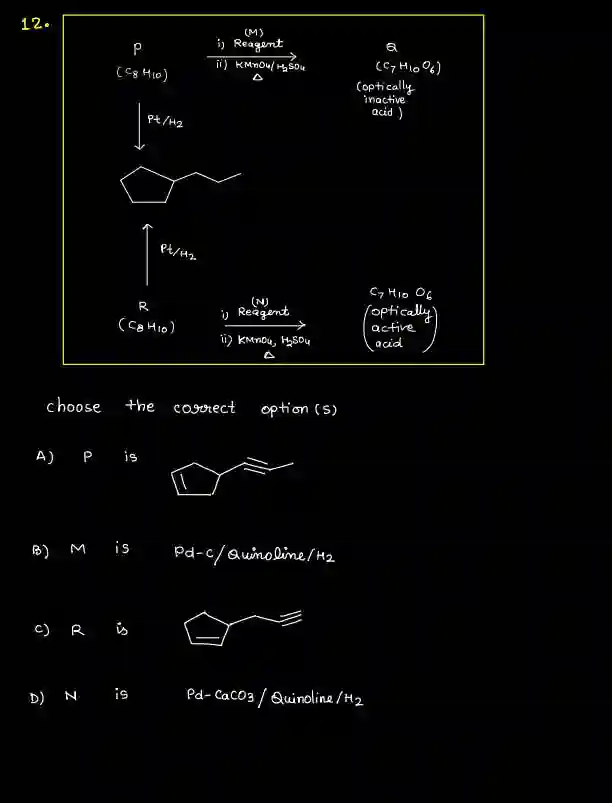 12.
P
(C8 H10)
(M)
i) Reagent
ii) KMnO4/H2SO4
Δ
Q
(C7 H10 O6)
(optically
inactive
acid)
Pt/H2
Pt/H2
R
(C8 H10)
(N)
i) Reagent
ii) KMnO4, H2SO4
Δ
C7 H10 O6
(optically
active
acid)
choose the correct option(s)
A) P is
B) M is Pd-C/Quinoline/H2
C) R is
D) N is Pd-CaCO3/Quinoline/H2